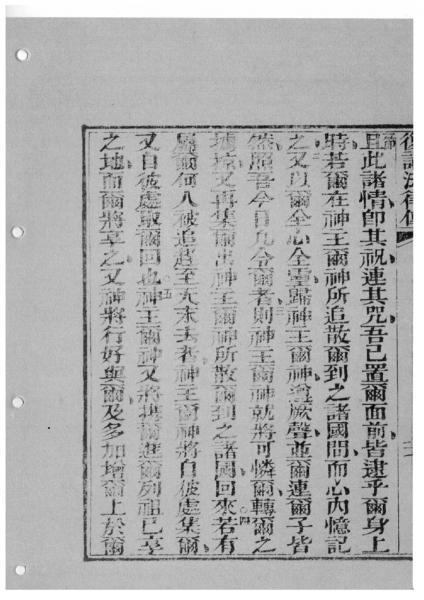 復講法律傳
且此諸情即其祝連其咒吾已置爾面前皆逮乎爾身上
時若爾在神王爾神所追散爾到之諸國間而心內憶記
之二又以爾全心全靈歸神王爾神遵厥聲並爾連爾子皆
然照吾今日凡令爾者則神王爾神就將可憐爾轉爾之
擄掠又再集爾出神王爾神所散爾到之諸國回來四若有
屬爾何人被追趕至天末去者神王爾神將自彼處集爾
又自彼處取爾回也五神王爾神又將攜爾進爾列祖已享
之地而爾將享之又神將行好與爾及多加增爾上於爾